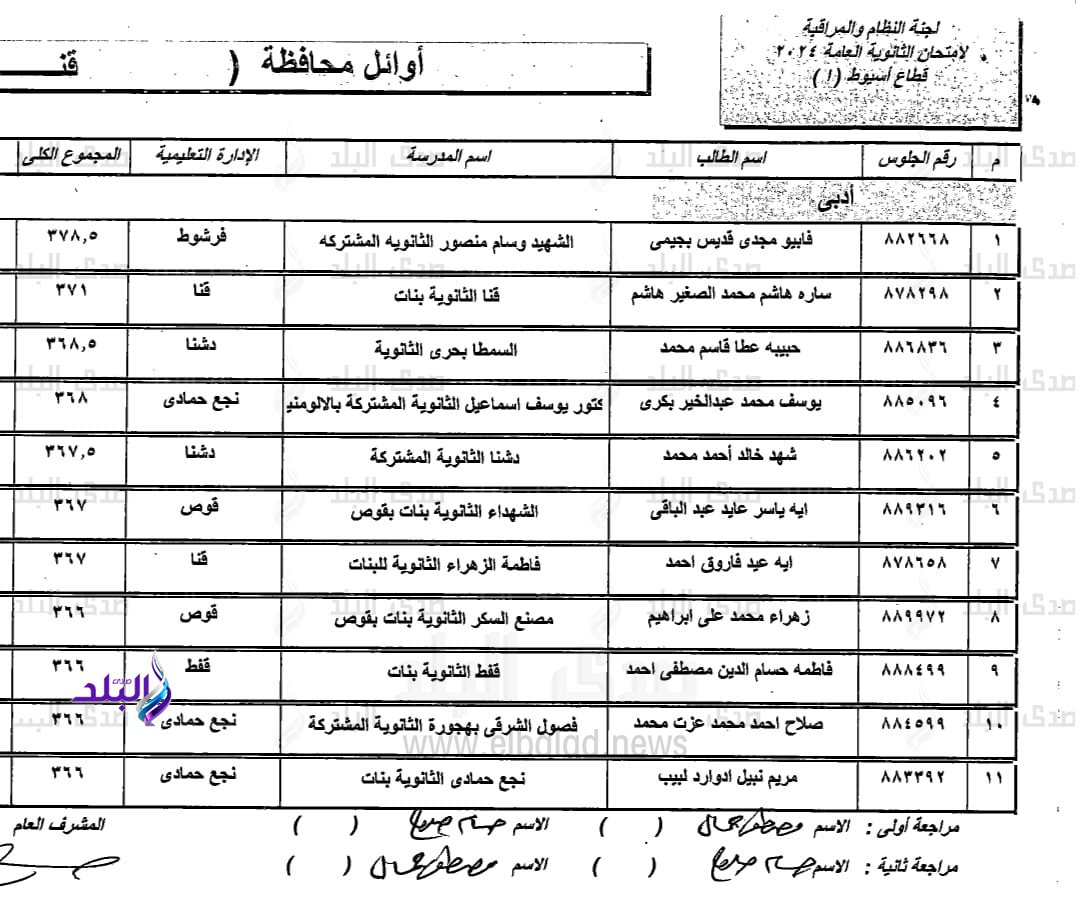 لجنة النظام والمراقبة
لامتحان الثانوية العامة ٢٠٢٤
قطاع أسيوط (١)
أوائل محافظة ( قنـــــا
م رقم الجلوس اسم الطالب اسم المدرسة الإدارة التعليمية المجموع الكلى
أدبى
١ ٨٨٢٦٦٨ فابيو مجدى قديس بجيمى الشهيد وسام منصور الثانويه المشتركه فرشوط ٣٧٨,٥
٢ ٨٧٨٢٩٨ ساره هاشم محمد الصغير هاشم قنا الثانوية بنات قنا ٣٧١
٣ ٨٨٦٨٣٦ حبيبه عطا قاسم محمد السمطا بحرى الثانوية دشنا ٣٦٨,٥
٤ ٨٨٥٠٩٦ يوسف محمد عبدالخير بكرى كتور يوسف اسماعيل الثانوية المشتركة بالالومني نجع حمادى ٣٦٨
٥ ٨٨٦٢٠٢ شهد خالد أحمد محمد دشنا الثانوية المشتركة دشنا ٣٦٧,٥
٦ ٨٨٩٣١٦ ايه ياسر عايد عبد الباقى الشهداء الثانوية بنات بقوص قوص ٣٦٧
٧ ٨٧٨٦٥٨ ايه عيد فاروق احمد فاطمة الزهراء الثانوية للبنات قنا ٣٦٧
٨ ٨٨٩٩٧٢ زهراء محمد على ابراهيم مصنع السكر الثانوية بنات بقوص قوص ٣٦٦
٩ ٨٨٨٤٩٩ فاطمه حسام الدين مصطفى احمد قفط الثانوية بنات قفط ٣٦٦
١٠ ٨٨٤٥٩٩ صلاح احمد محمد عزت محمد فصول الشرقى بهجورة الثانوية المشتركة نجع حمادى ٣٦٦
١١ ٨٨٣٣٩٢ مريم نبيل ادوارد لبيب نجع حمادى الثانوية بنات نجع حمادى ٣٦٦
صدى البلد
www.elbalad.news
مراجعة أولى : الاسم ( ) الاسم ( ) المشرف العام
مراجعة ثانية : الاسم ( ) الاسم ( )